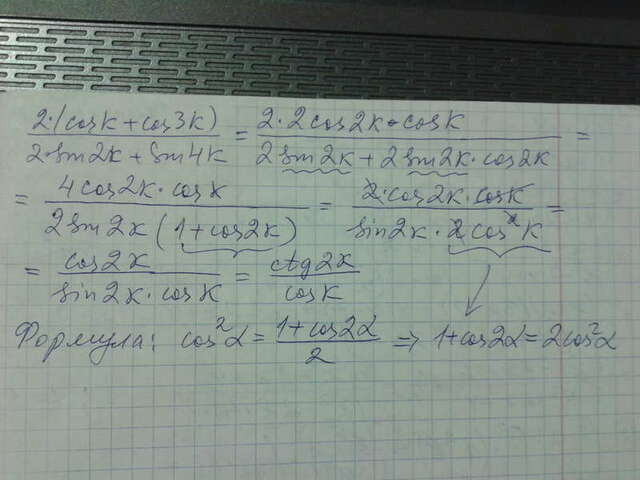 2·(cosk+cos3k)/(2·sin2k+sin4k) = 2·2cos2k·cosk/(2sin2k+2sin2k·cos2k) =
= 4cos2k·cosk/(2sin2k(1+cos2k)) = 2·cos2k·cosk/(sin2k·2cos²k) =
= cos2k/(sin2k·cosk) = ctg2k/cosk
Формула: cos²α = (1+cos2α)/2 ⇒ 1+cos2α=2cos²α